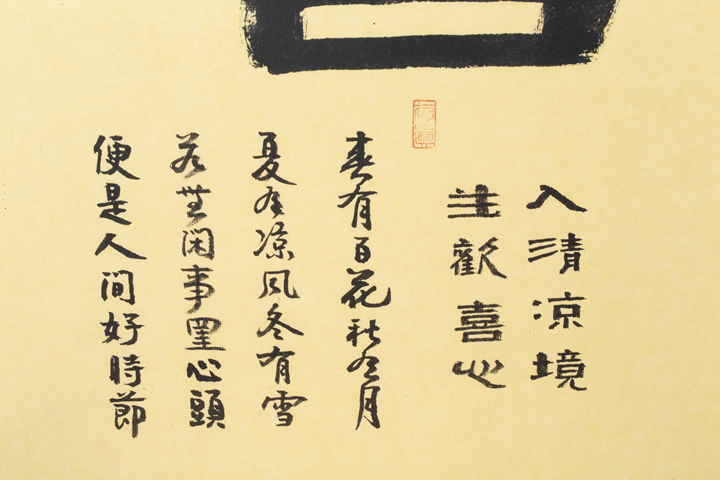 入清凉境
生歡喜心
春有百花秋有月
夏有凉風冬有雪
若無閑事罣心頭
便是人間好時節